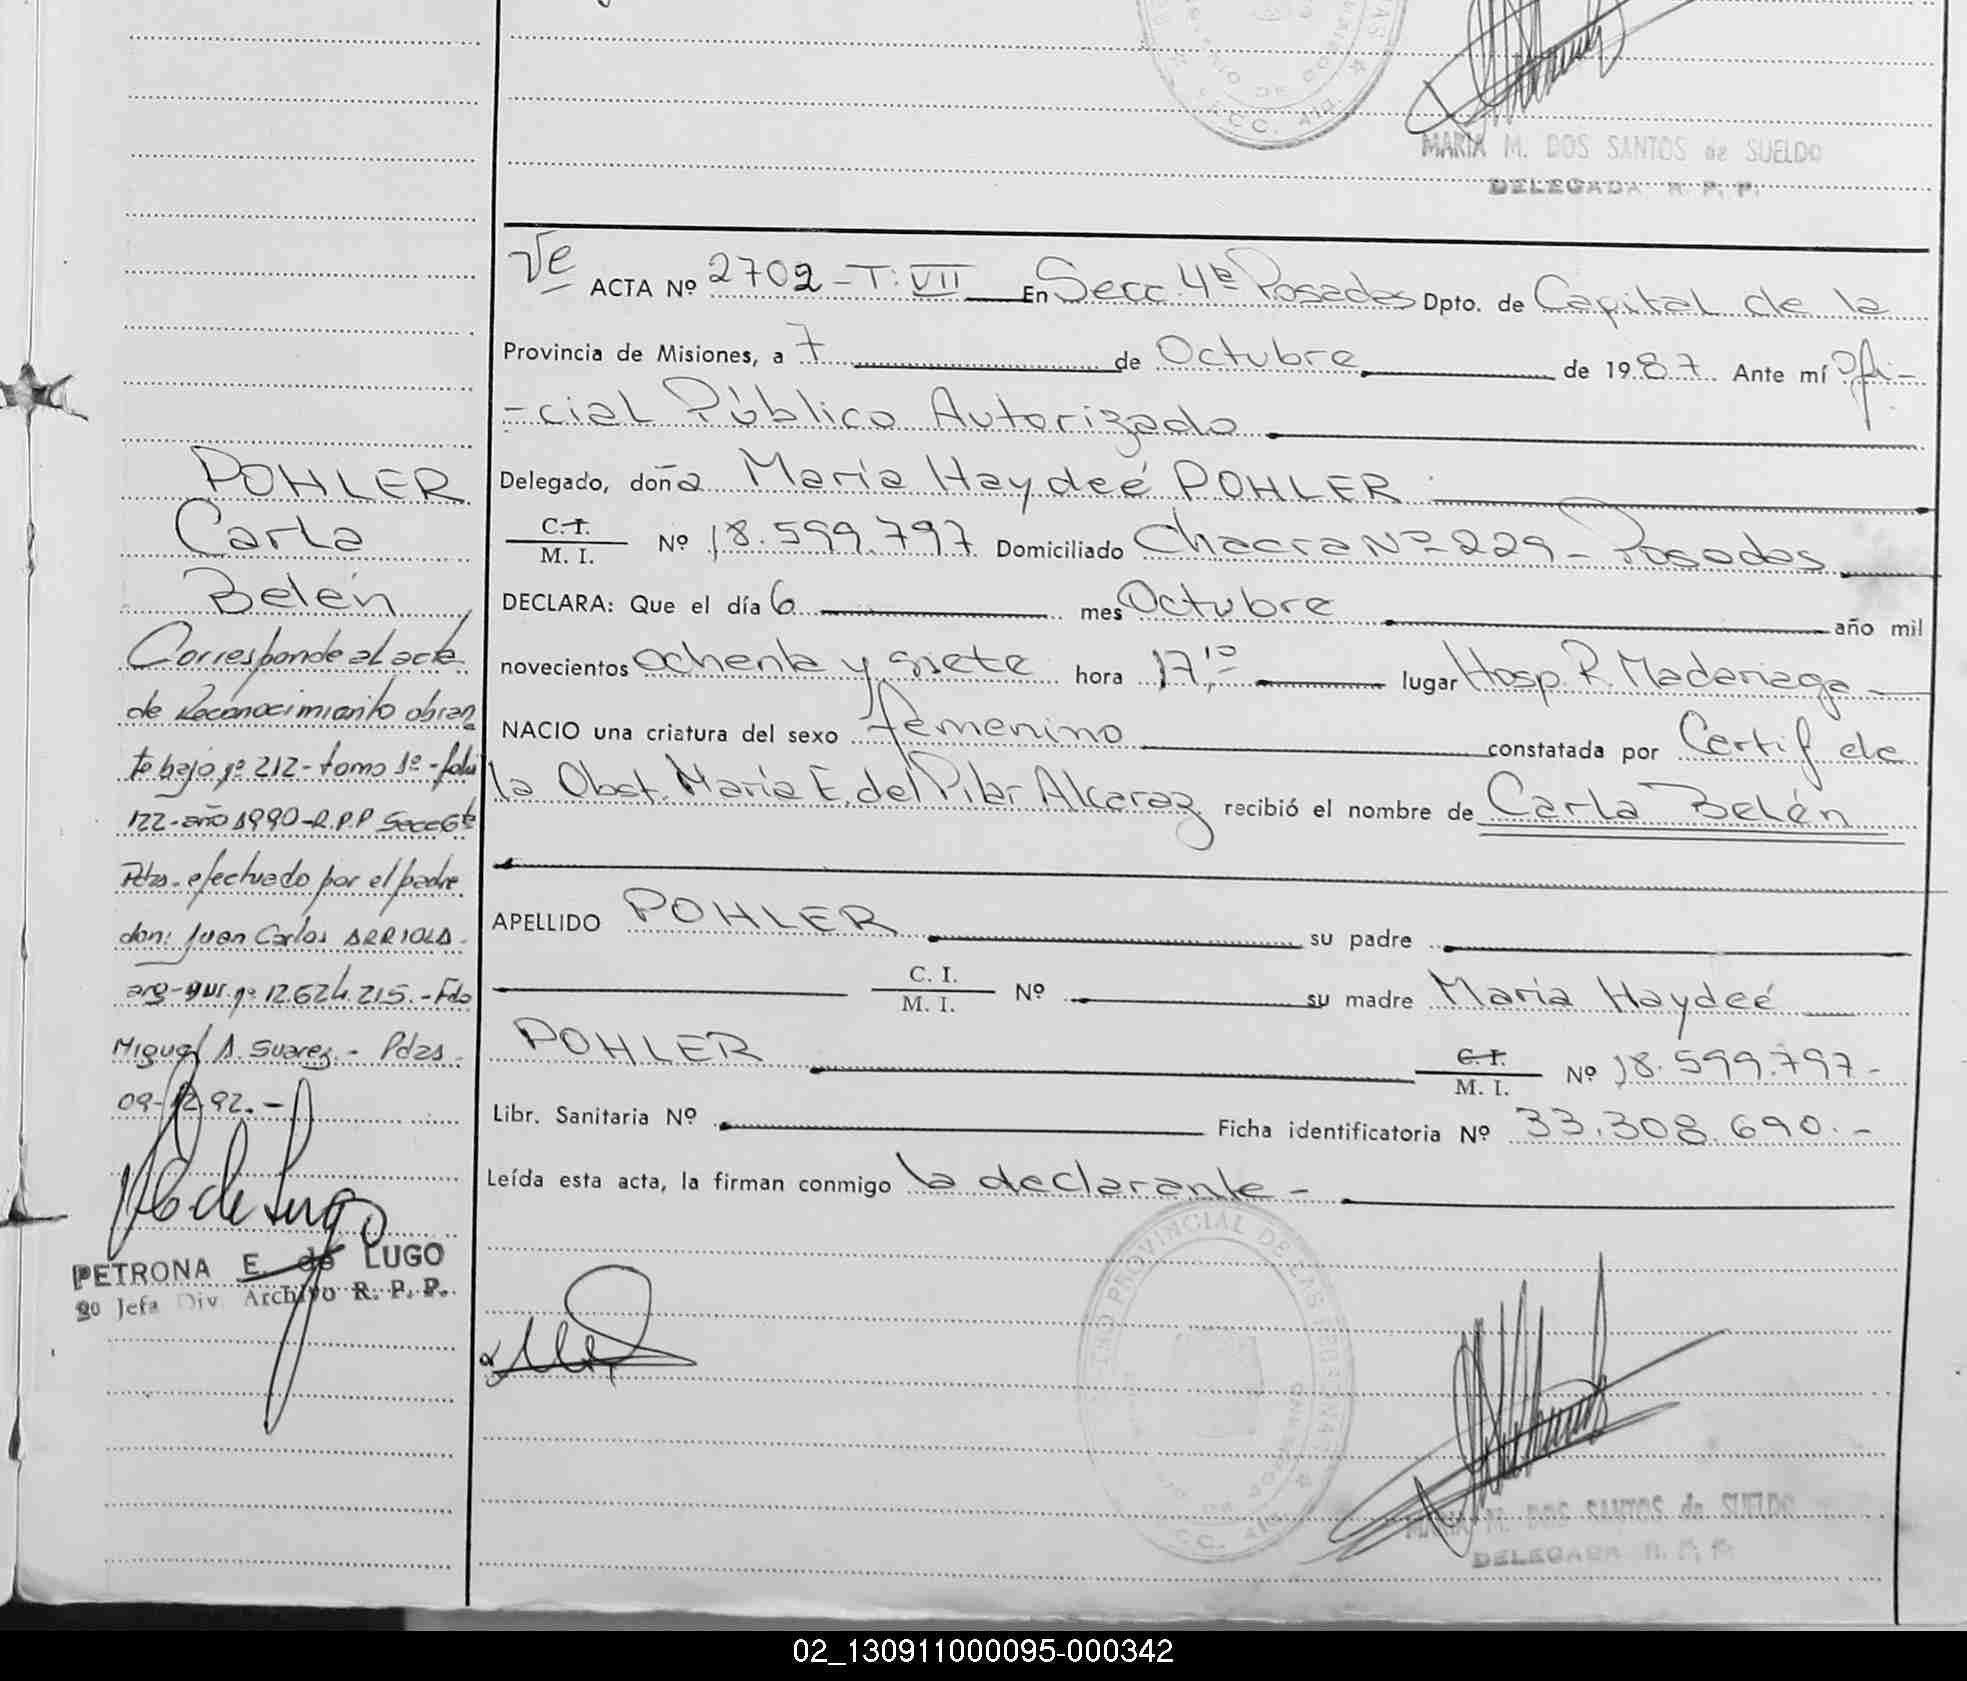 MARIA M. DOS SANTOS de SUELDO
DELEGADA R. P. P.
ACTA Nº 2702-T: VII En Secc. 4ta Posadas Dpto. de Capital de la
Provincia de Misiones, a 7 de Octubre de 1987. Ante mí Ofi-
-cial Público Autorizado
Delegado, doña María Haydeé POHLER
C.I. M. I. Nº 18.599.797 Domiciliado Chacra Nº 229 - Posadas
DECLARA: Que el día 6 mes Octubre año mil
novecientos ochenta y siete hora 17,10 lugar Hosp. R. Madariaga
NACIO una criatura del sexo femenino constatada por Certif de
la Obst. María E. del Pilar Alcaraz recibió el nombre de Carla Belén
APELLIDO POHLER su padre
C. I. M. I. Nº su madre María Haydeé
POHLER C. I. M. I. Nº 18.599.797-
Libr. Sanitaria Nº Ficha identificatoria Nº 33.308.690.-
Leída esta acta, la firman conmigo la declarante -
POHLER
Carla
Belén
Corresponde al acta
de Reconocimiento obran
te bajo nº 212- tomo 1º - folio
122- año 1990- R.P.P Secc 6ta
Pdas. efectuado por el padre
don: Juan Carlos ARRIOLA-
arg- nº 12.624.215.- Fdo
Miguel A. Suarez.- Pdas -
09-12-92.-
PETRONA E. de LUGO
2o Jefa Div. Archivo R. P. P.
MARIA M. DOS SANTOS de SUELDO
DELEGADA R. P. P.
02_130911000095-000342